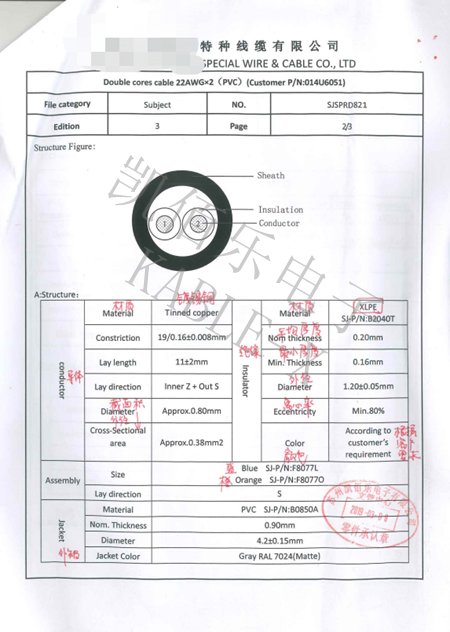 特种线缆有限公司
SPECIAL WIRE & CABLE CO., LTD
Double cores cable 22AWG×2（PVC）(Customer P/N:014U6051)
File category Subject NO. SJSPRD821
Edition 3 Page 2/3
Structure Figure:
Sheath
Insulation
Conductor
1 2
凯佰乐电子
KABLE-X
A:Structure:
conductor 导体
材质 Material 镀锡铜 Tinned copper
Constriction 19/0.16±0.008mm
Lay length 11±2mm
Lay direction Inner Z + Out S
截面积 Diameter 外径 Approx.0.80mm
Cross-Sectional area Approx.0.38mm2
绝缘 Insulator
材质 Material XLPE SJ-P/N:B2040T
Nom thickness 0.20mm
最小厚度 Min. Thickness 0.16mm
外径 Diameter 1.20±0.05mm
Eccentricity Min.80%
Color 颜色 According to customer's requirement
Assembly
Size 蓝 Blue SJ-P/N:F8077L
橙 Orange SJ-P/N:F8077O
Lay direction S
Jacket
Material PVC SJ-P/N:B0850A
Nom. Thickness 0.90mm
Diameter 4.2±0.15mm
Jacket Color Gray RAL 7024(Matte)
零件承认章